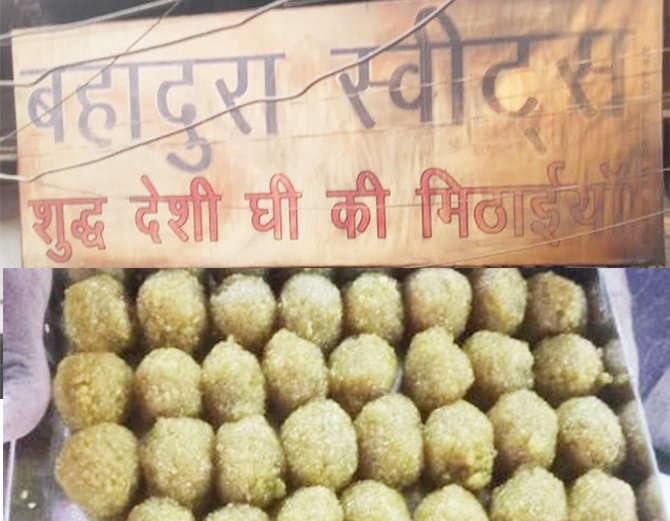 बहादुरा स्वीट्स
शुद्ध देशी घी की मिठाईयाँ